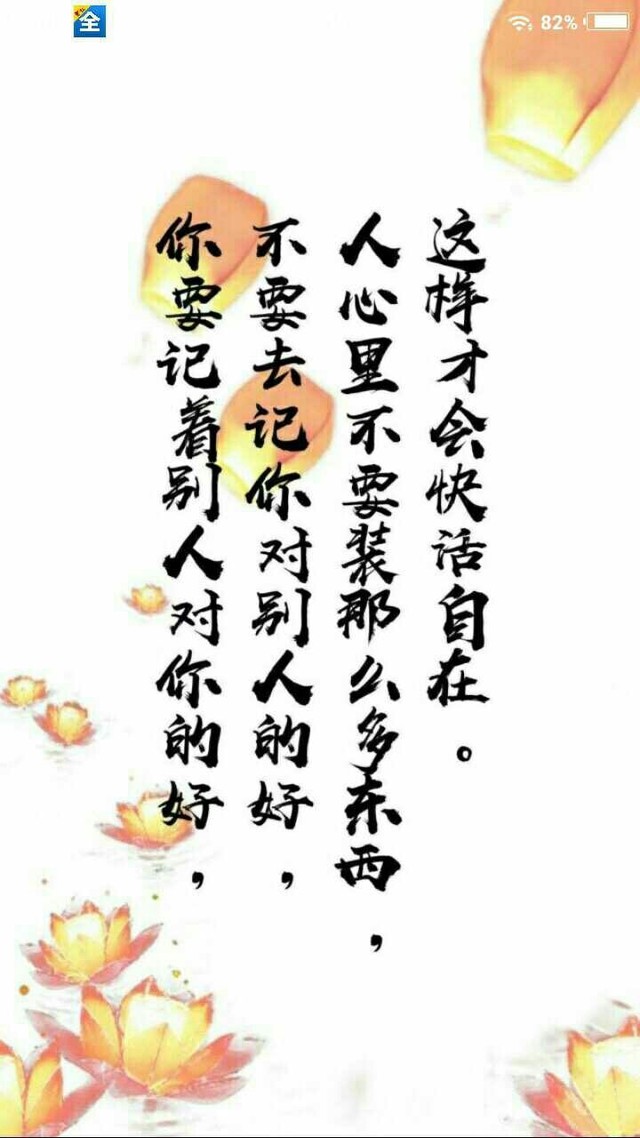 全
82%
你要记着别人对你的好,
不要去记你对别人的好,
人心里不要装那么多东西,
这样才会快活自在。